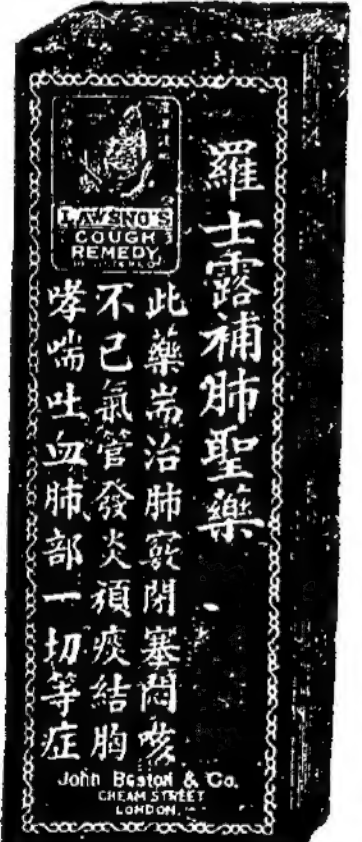 LAWSNO'S
COUGH
REMEDY
羅士露補肺聖藥
此藥耑治肺竅閉塞悶咳
不已氣管發炎頑痰結胸
哮喘吐血肺部一切等症
John Beston & Co.
CHEAM STREET
LONDON.